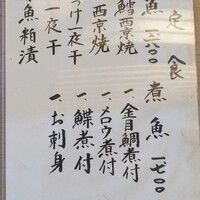 定食
煮魚 一七〇〇
一、金目鯛煮付
一、メロウ煮付
一、鰈煮付
一、お刺身
魚 一六〇〇
鱈西京焼
西京焼
け一夜干
一夜干
魚粕漬